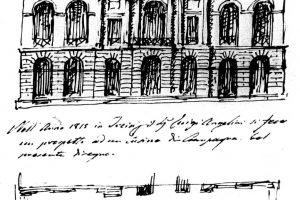 Nell' Anno 1815 in Luigi Angelini si fece
un progetto ad un Casino di Campagna nel
presente disegno.